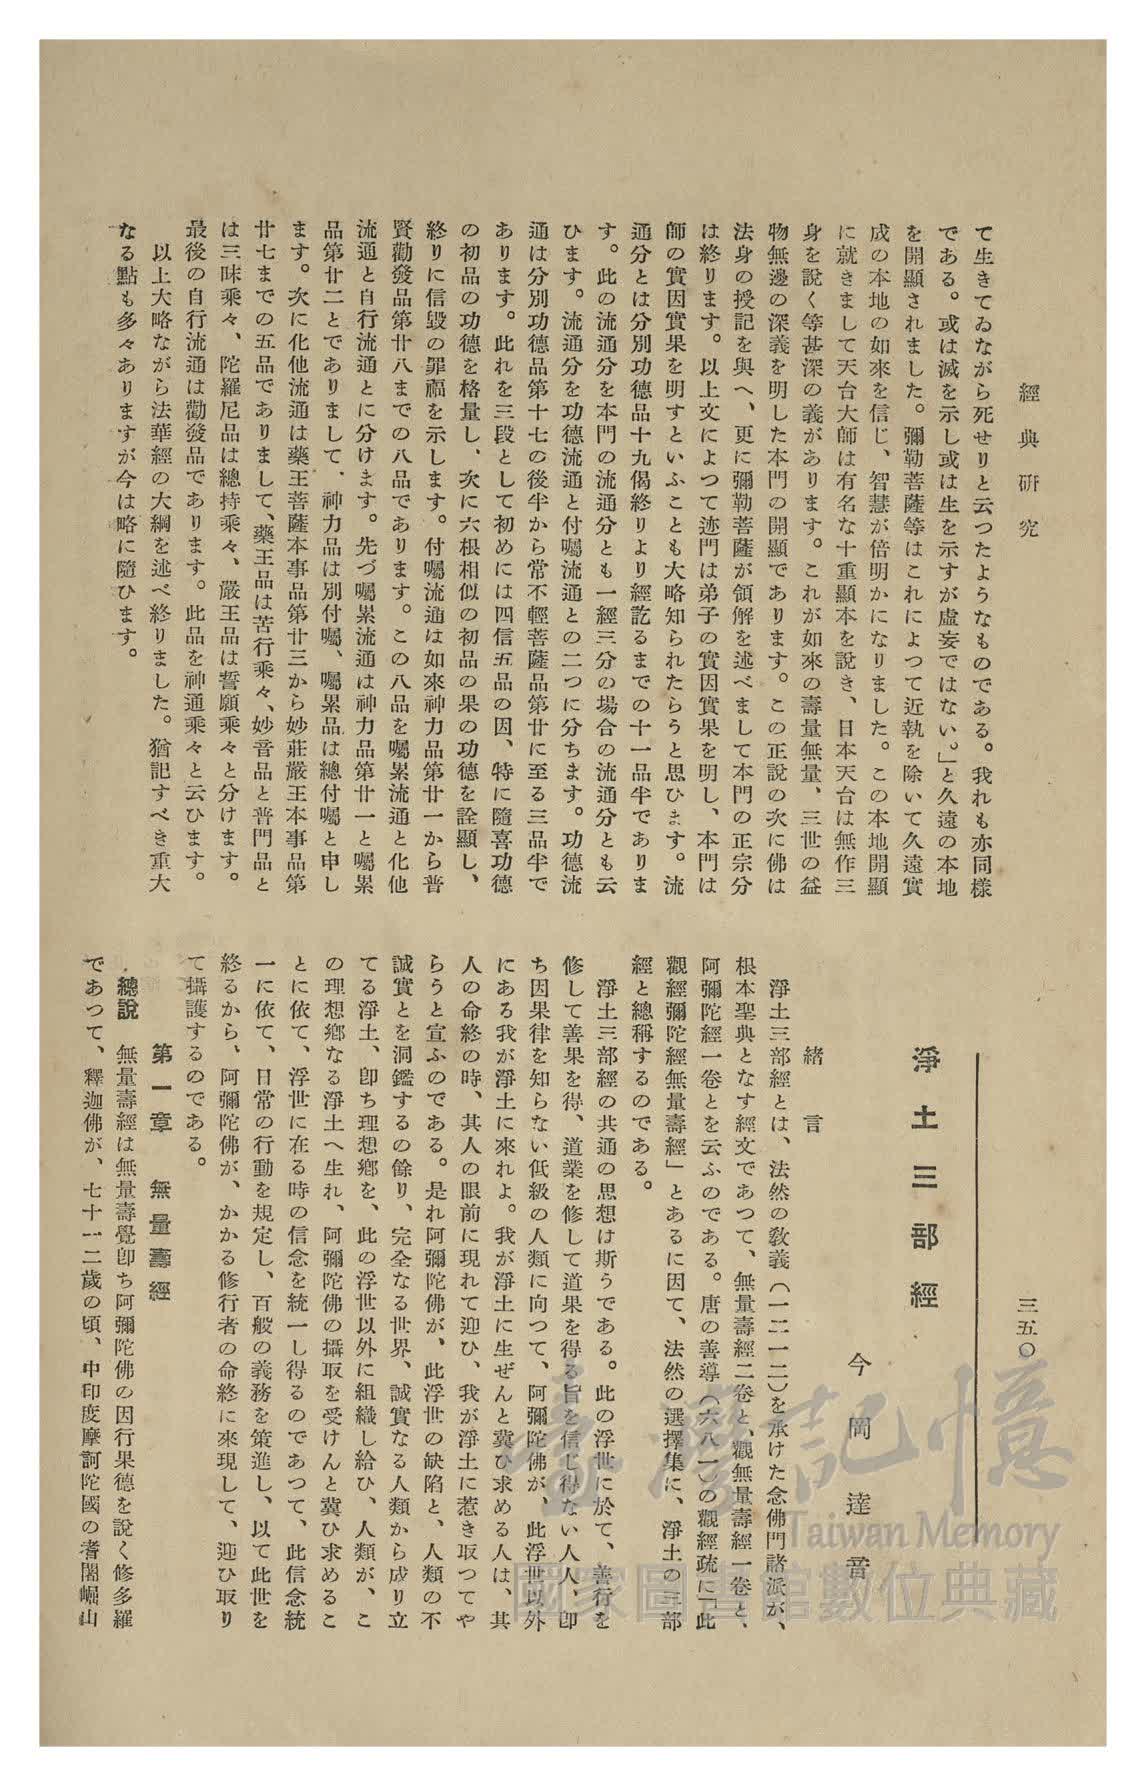 經典研究
て生きてゐながら死せりと云つたようなものである。我れも亦同樣
である。或は滅を示し或は生を示すが虛妄ではない。」と久遠の本地
を開顯されました。彌勒菩薩等はこれによつて近執を除いて久遠實
成の本地の如來を信じ、智慧が倍明かになりました。この本地開顯
に就きまして天台大師は有名な十重顯本を說き、日本天台は無作三
身を說く等甚深の義があります。これが如來の壽量無量、三世の益
物無邊の深義を明した本門の開顯であります。この正說の次に佛は
法身の授記を與へ、更に彌勒菩薩が領解を述べまして本門の正宗分
は終ります。以上文によつて迹門は弟子の實因實果を明し、本門は
師の實因實果を明すといふことも大略知られたらうと思ひます。流
通分とは分別功德品十九偈終りより經訖るまでの十一品半でありま
す。此の流通分を本門の流通分とも一經三分の場合の流通分とも云
ひます。流通分を功德流通と付囑流通との二つに分ちます。功德流
通は分別功德品第十七の後半から常不輕菩薩品第廿に至る三品半で
あります。此れを三段として初めには四信五品の因、特に隨喜功德
の初品の功德を格量し、次に六根相似の初品の果の功德を詮顯し、
終りに信毀の罪福を示します。付囑流通は如來神力品第廿一から普
賢勸發品第廿八までの八品であります。この八品を囑累流通と化他
流通と自行流通とに分けます。先づ囑累流通は神力品第廿一と囑累
品第廿二とでありまして、神力品は別付囑、囑累品は總付囑と申し
ます。次に化他流通は藥王菩薩本事品第廿三から妙莊嚴王本事品第
廿七までの五品でありまして、藥王品は苦行乘々、妙音品と普門品と
は三昧乘々、陀羅尼品は總持乘々、嚴王品は誓願乘々と分けます。
最後の自行流通は勸發品であります。此品を神通乘々と云ひます。
以上大略ながら法華經の大綱を述べ終りました。猶記すべき重大
なる點も多々ありますが今は略に隨ひます。
三五〇
淨土三部經
今岡達音
緖言
淨土三部經とは、法然の敎義（一二一二）を承けた念佛門諸派が、
根本聖典となす經文であつて、無量壽經二卷と、觀無量壽經一卷と、
阿彌陀經一卷とを云ふのである。唐の善導（六八一）の觀經疏に「此
觀經彌陀經無量壽經」とあるに因て、法然の選擇集に、淨土の三部
經と總稱するのである。
淨土三部經の共通の思想は斯うである。此の浮世に於て、善行を
修して善果を得、道業を修して道果を得る旨を信じ得ない人人、卽
ち因果律を知らない低級の人類に向つて、阿彌陀佛が、此浮世以外
にある我が淨土に來れよ。我が淨土に生ぜんと冀ひ求める人は、其
人の命終の時、其人の眼前に現れて迎ひ、我が淨土に惹き取つてや
らうと宣ふのである。是れ阿彌陀佛が、此浮世の缺陷と、人類の不
誠實とを洞鑑するの餘り、完全なる世界、誠實なる人類から成り立
てる淨土、卽ち理想鄕を、此の浮世以外に組織し給ひ、人類が、こ
の理想鄕なる淨土へ生れ、阿彌陀佛の攝取を受けんと冀ひ求めるこ
とに依て、浮世に在る時の信念を統一し得るのであつて、此信念統
一に依て、日常の行動を規定し、百般の義務を策進し、以て此世を
終るから、阿彌陀佛が、かかる修行者の命終に來現して、迎ひ取り
て攝護するのである。
第一章 無量壽經
總說 無量壽經は無量壽覺卽ち阿彌陀佛の因行果德を說く修多羅
であつて、釋迦佛が、七十一二歲の頃、中印度摩訶陀國の耆闍崛山
臺灣記憶
Taiwan Memory
國家圖書館數位典藏